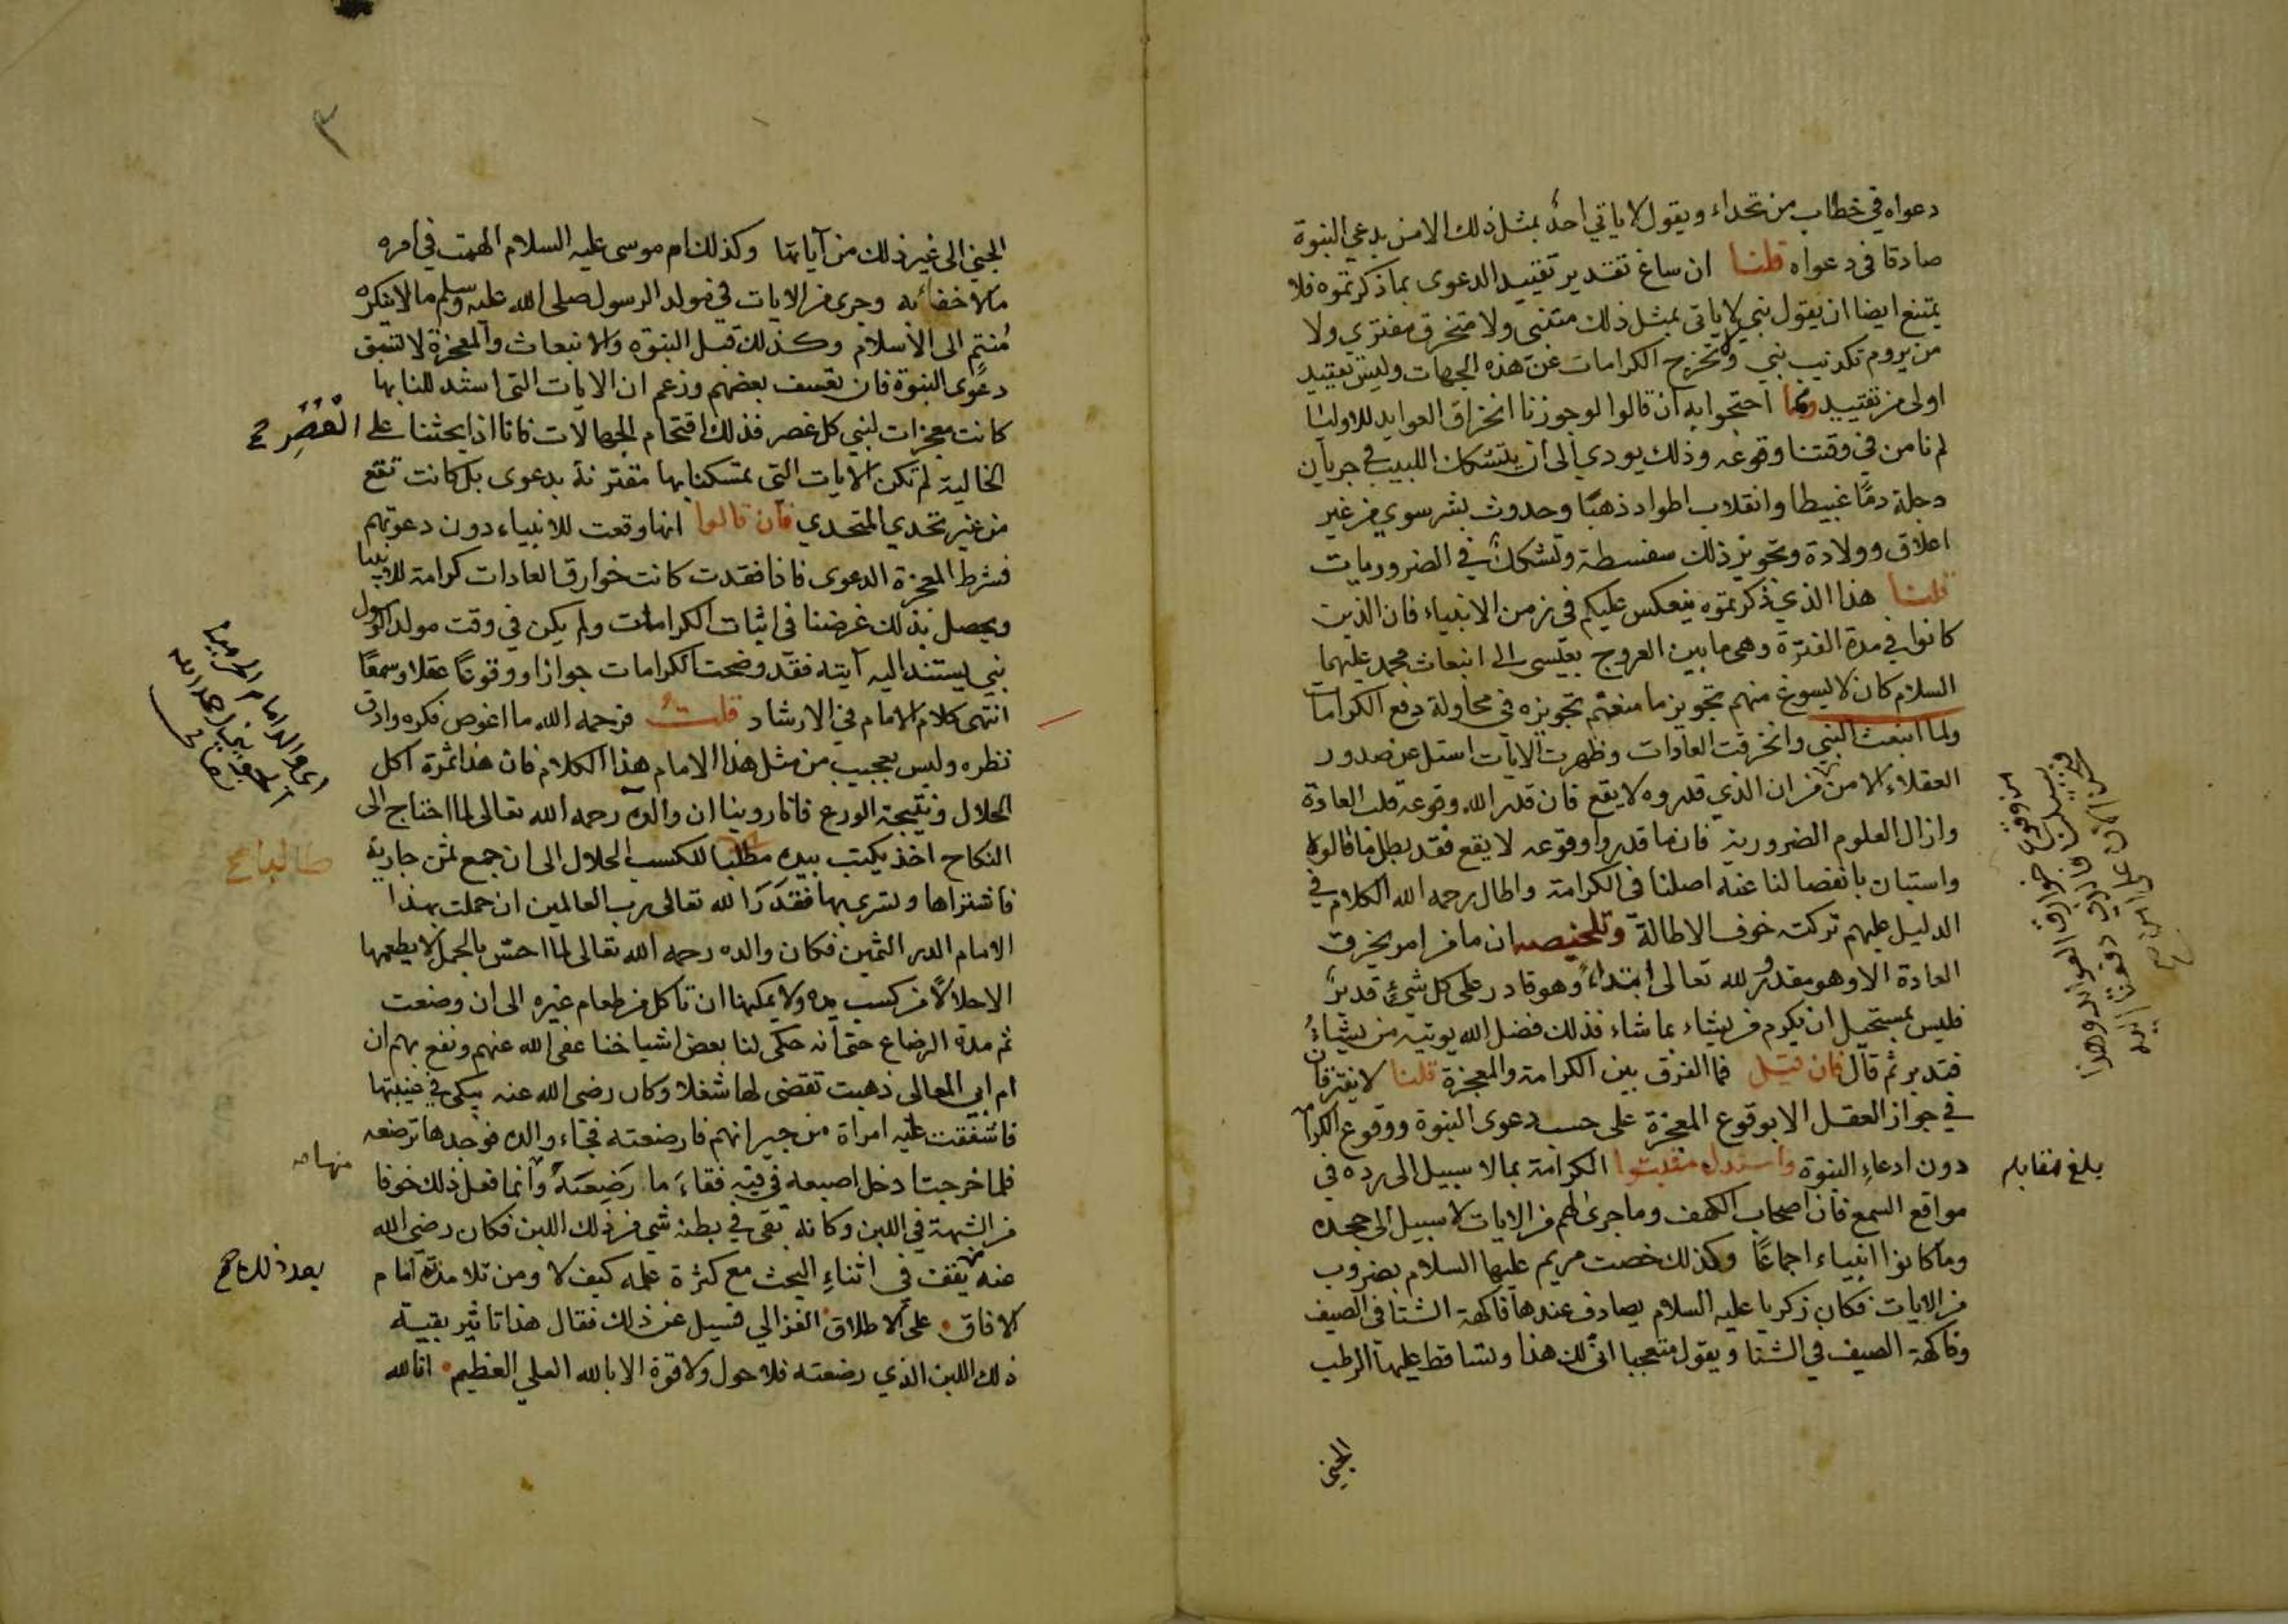 دعواه في خطاب من تحداه ويقول لا ياتي احد بمثل ذلك الا من يدعي النبوة
صادقا في دعواه قلنا ان ساغ تقدير تقييد الدعوى بما ذكرتموه فلا
يمتنع ايضا ان يقول نبي لا ياتي بمثل ذلك متنبي ولا متخرق مفتري ولا
من يروم تكذيب نبي وتخرج الكرامات عن هذه الجهات وليس تقييد
اولى من تقييد ومما احتجوا به ان قالوا لو جوزنا انخراق العوايد للاوليا
لم نامن في وقتنا وقوعه وذلك يودي الى ان يتشكك اللبيب في جريان
دجلة دمًا غبيطا وانقلاب اطواد ذهبًا وحدوث بشر سوي من غير
اعلاق وولادة وتجويز ذلك سفسطة وتشكك في الضروريات
قلنا هذا الذي ذكرتموه ينعكس عليكم في زمن الانبياء فان الذين
كانوا في مدة الفترة وهي ما بين العروج بعيسى الى انبعاث محمد عليهما
السلام كان لا يسوغ منهم تجويز ما منعتم تجويزه في محاولة دفع الكرامات
ولما انبعث النبي وانخرقت العادات وظهرت الايات استل عن صدور
العقلاء الامن من ان الذي قدروه لا يقع فان قدر الله وقوعه قلب العادة
وازال العلوم الضرورية فان ما قدروا وقوعه لا يقع فقد بطل ما قالوه
واستبان بانفصالنا عنه اصلنا في الكرامة واطال رحمه الله الكلام في
الدليل عليهم تركته خوف الاطالة وتلخيصه ان ما من امر يخرق
العادة الا وهو مقدور لله تعالى ابتداءً وهو قادر على كل شيء قدير
فليس بمستحيل ان يكرم من يشاء بما شاء فذلك فضل الله يوتيه من يشاءُ
فتدبر ثم قال فان قيل فما الفرق بين الكرامة والمعجزة قلنا لا يفترقان
في جواز العقل الا بوقوع المعجزة على حسب دعوى النبوة ووقوع الكرامة
دون ادعاء النبوة واستدل مثبتوا الكرامة بما لا سبيل الى رده في
بلغ مقابله
مواقع السمع فان اصحاب الكهف وما جرى لهم من الايات لا سبيل الى جحده
وما كانوا انبياء اجماعًا وكذلك خصت مريم عليها السلام بضروب
من الايات فكان زكريا عليه السلام يصادف عندها فاكهة الشتا في الصيف
وفاكهة الصيف في الشتا ويقول متعجبا انى لك هذا وتساقط عليها الرطب
الجني
٣
الجني الى غير ذلك من آياتها وكذلك ام موسى عليه السلام الهمت في امره
ما لا خفاء به وجرى من الايات في مولد الرسول صلى الله عليه وسلم ما لا ينكره
مُنتمٍ الى الاسلام وكذلك قبل النبوة والانبعاث والمعجزة لا تسبق
دعوى النبوة فان تعسف بعضهم وزعم ان الايات التي استدللنا بها
كانت معجزات لنبي كل عصر فذلك اقتحام الجهالات فانا اذا بحثنا على العُصُرِ صح
الخالية لم تكن الايات التي تمسكنا بها مقترنة بدعوى بل كانت تقع
من غير تحدي المتحدي فان قالوا انها وقعت للانبياء دون دعوتهم
فشرط المعجزة الدعوى فاذا فقدت كانت خوارق العادات كرامة للانبيا
ويحصل بذلك غرضنا في اثبات الكرامات ولم يكن في وقت مولد الرسول
نبي يستند اليه آيته فقد وضحت الكرامات جوازا ووقوعًا عقلا وسمعًا
انتهى كلام الامام في الارشاد قلتُ فرحمه الله ما اغوص فكره وادق
نظره وليس بعجيب من مثل هذا الامام هذا الكلام فان هذا ثمرة اكل
الحلال ونتيجة الورع فانا روينا ان والده رحمه الله تعالى لما احتاج الى
النكاح اخذ يكتب بيده مطلبا للكسب الحلال الى ان جمع ثمن جارية
طالبا صح
فاشتراها وتسرى بها فقدر الله تعالى رب العالمين ان حملت بهذا
الامام الدر الثمين فكان والده رحمه الله تعالى لما احس بالحمل لا يطعمها
الا حلالًا من كسب يده ولا يمكنها ان تاكل من طعام غيره الى ان وضعت
ثم مدة الرضاع حتى انه حكى لنا بعض اشياخنا عفى الله عنهم ونفع بهم ان
ام ابي المعالي ذهبت تقضي لها شغلا وكان رضي الله عنه يبكي في غيبتها
فاشفقت عليه امراة من جيرانهم فارضعته فجاء والده فوجدها ترضعه
فلما خرجت ادخل اصبعه في فيه فقاءَ ما رَضِعَتهُ وانما فعل ذلك خوفا
منها صح
من الشبهة في اللبن وكانه بقي في بطنه شي من ذلك اللبن فكان رضي الله
عنه يقف في اثناء البحث مع كثرة علمه كيف لا ومن تلامذته امام
بعد ذلك صح
الافاق على الاطلاق الغزالي فسيل عن ذلك فقال هذا تاثير بقية
ذلك اللبن الذي رضعته فلا حول ولا قوة الا بالله العلي العظيم انا لله